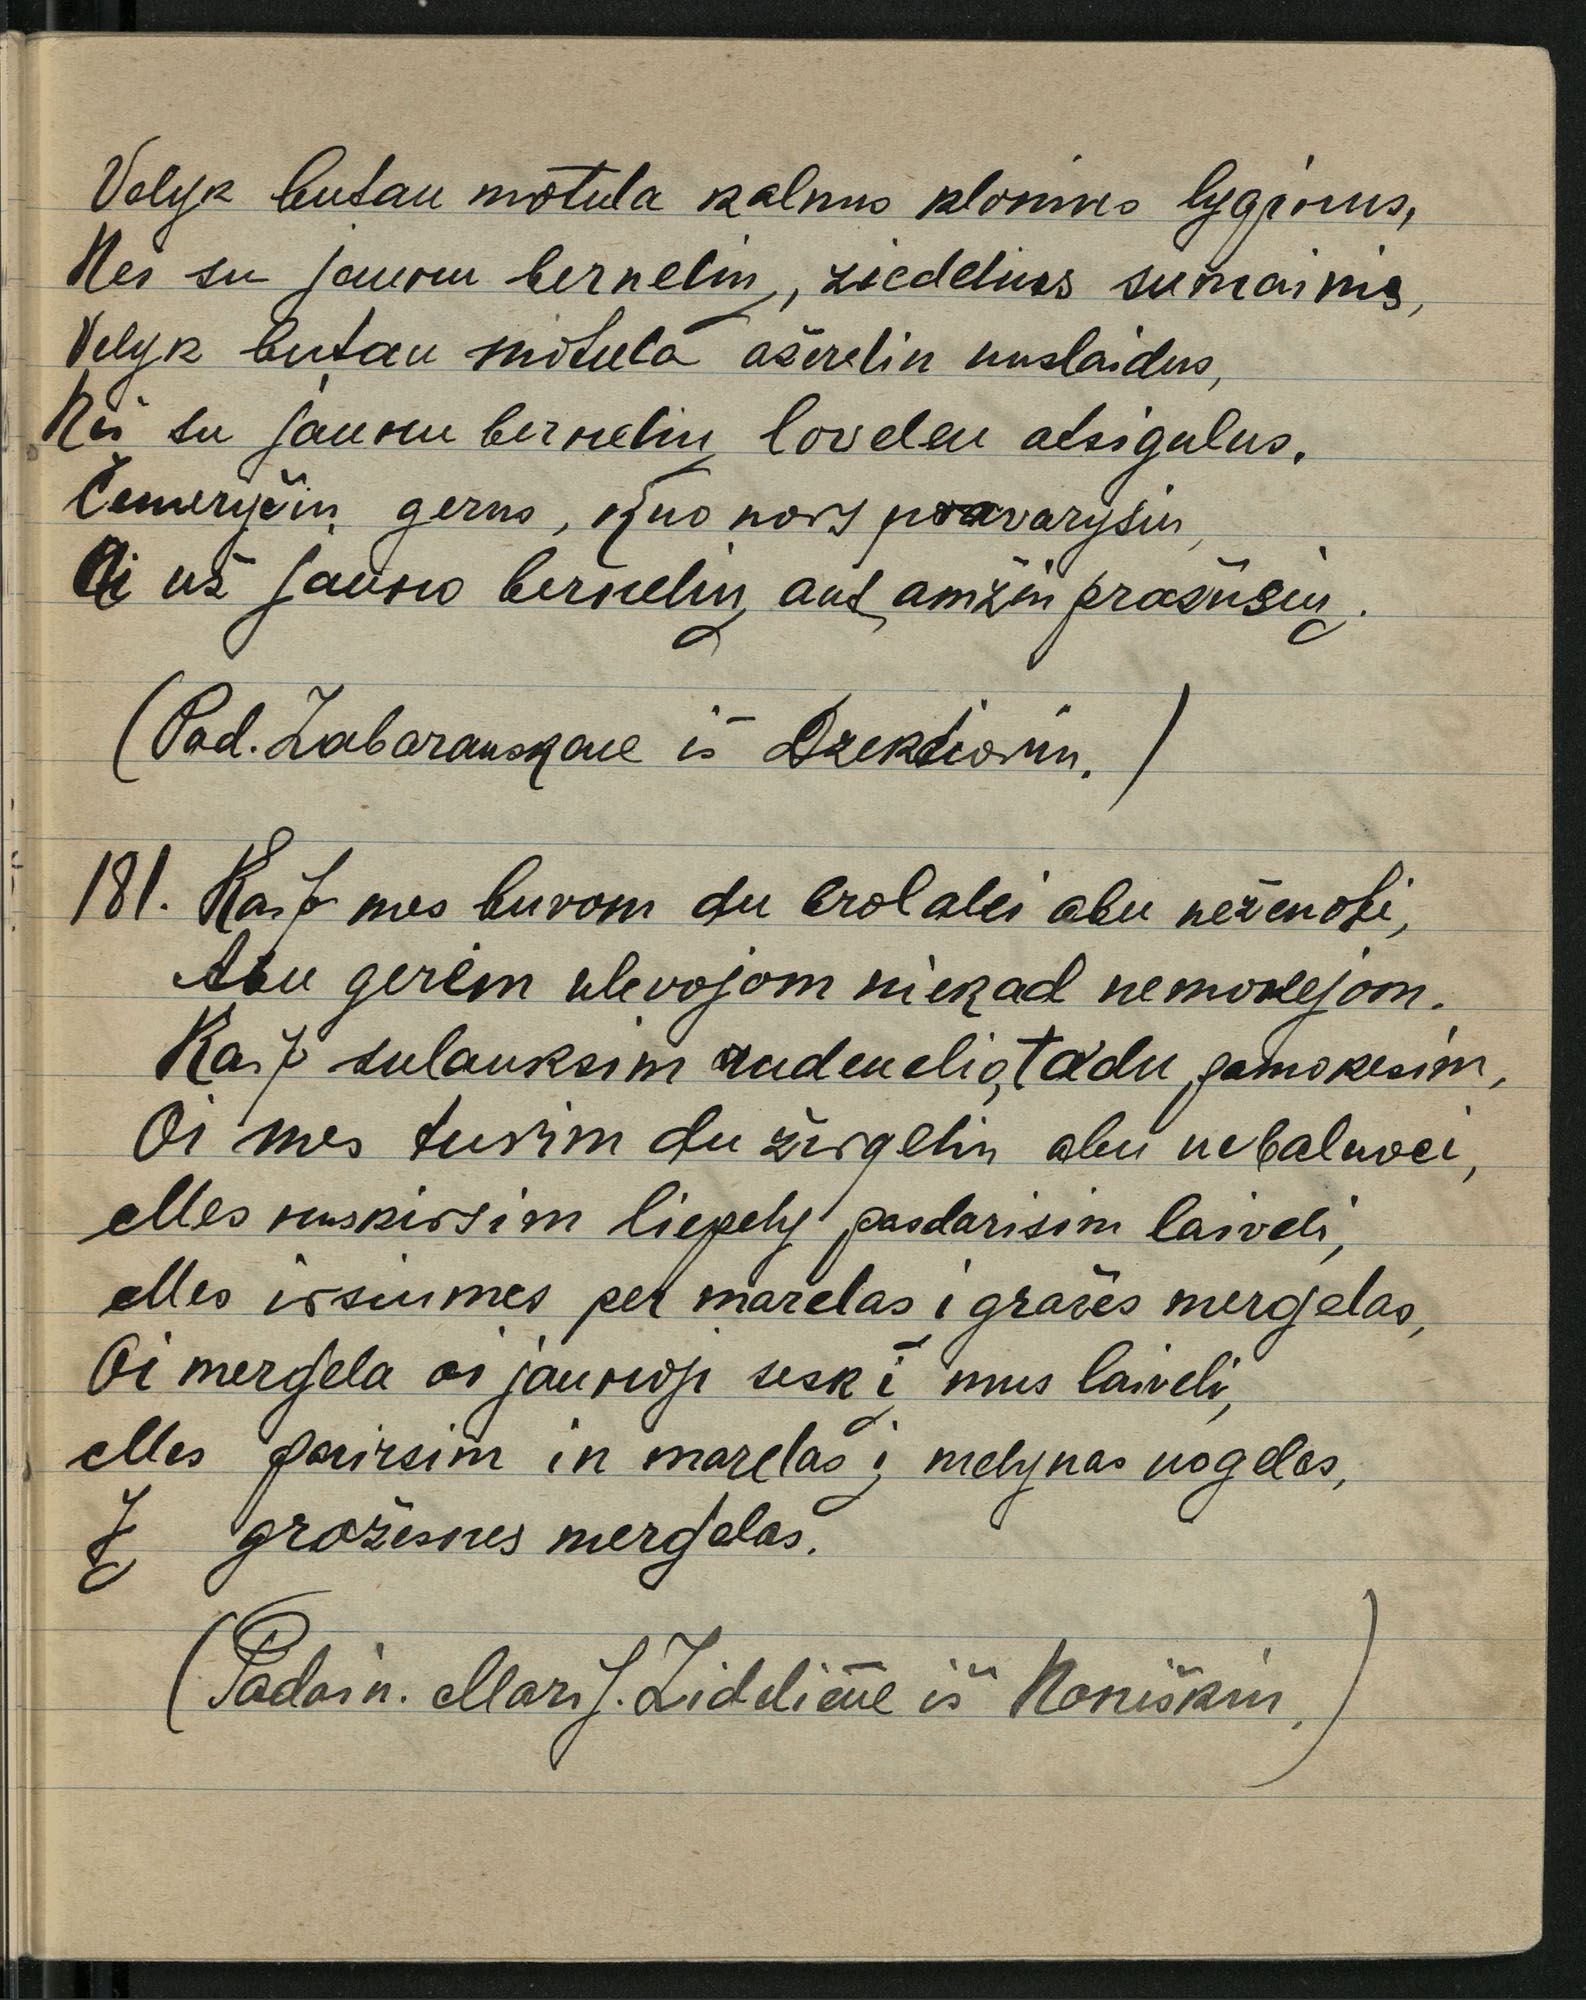 Velyk butau motula kalnus klonius lygjnus,
Nei su jaunu bernelių, žiedelius sumainis,
Velyk butau motula ašerelin nuslaidus,
Nei su jaunu bernelių lovelen atsigulus.
Čemeryčių gerus, kuo nors pravarysiu,
Ai už jauno bernelių ant amžin pražusiu.
(Pad. Zabarauskaue iš Dzektiorin.)
181. Kaip mes buvom du brolalei abu neženoti,
Abu gerėm ulevojom niekad nemokejom.
Kaip sulauksim rudenelio, tadu pamokesim,
Oi mes turim du žirgelin abu nebaluoei,
Mes nuskirsim liepely pasdarisim laiveli,
Mes irsiumes per marelas i gražes mergelas,
Oi mergela oi jaunoji sesk į mus laiveli,
Mes pairsim in marelas į melynas uogelas,
Į gražesnes mergelas.
(Padain. Marij. Zidelienė iš Noniškin.)